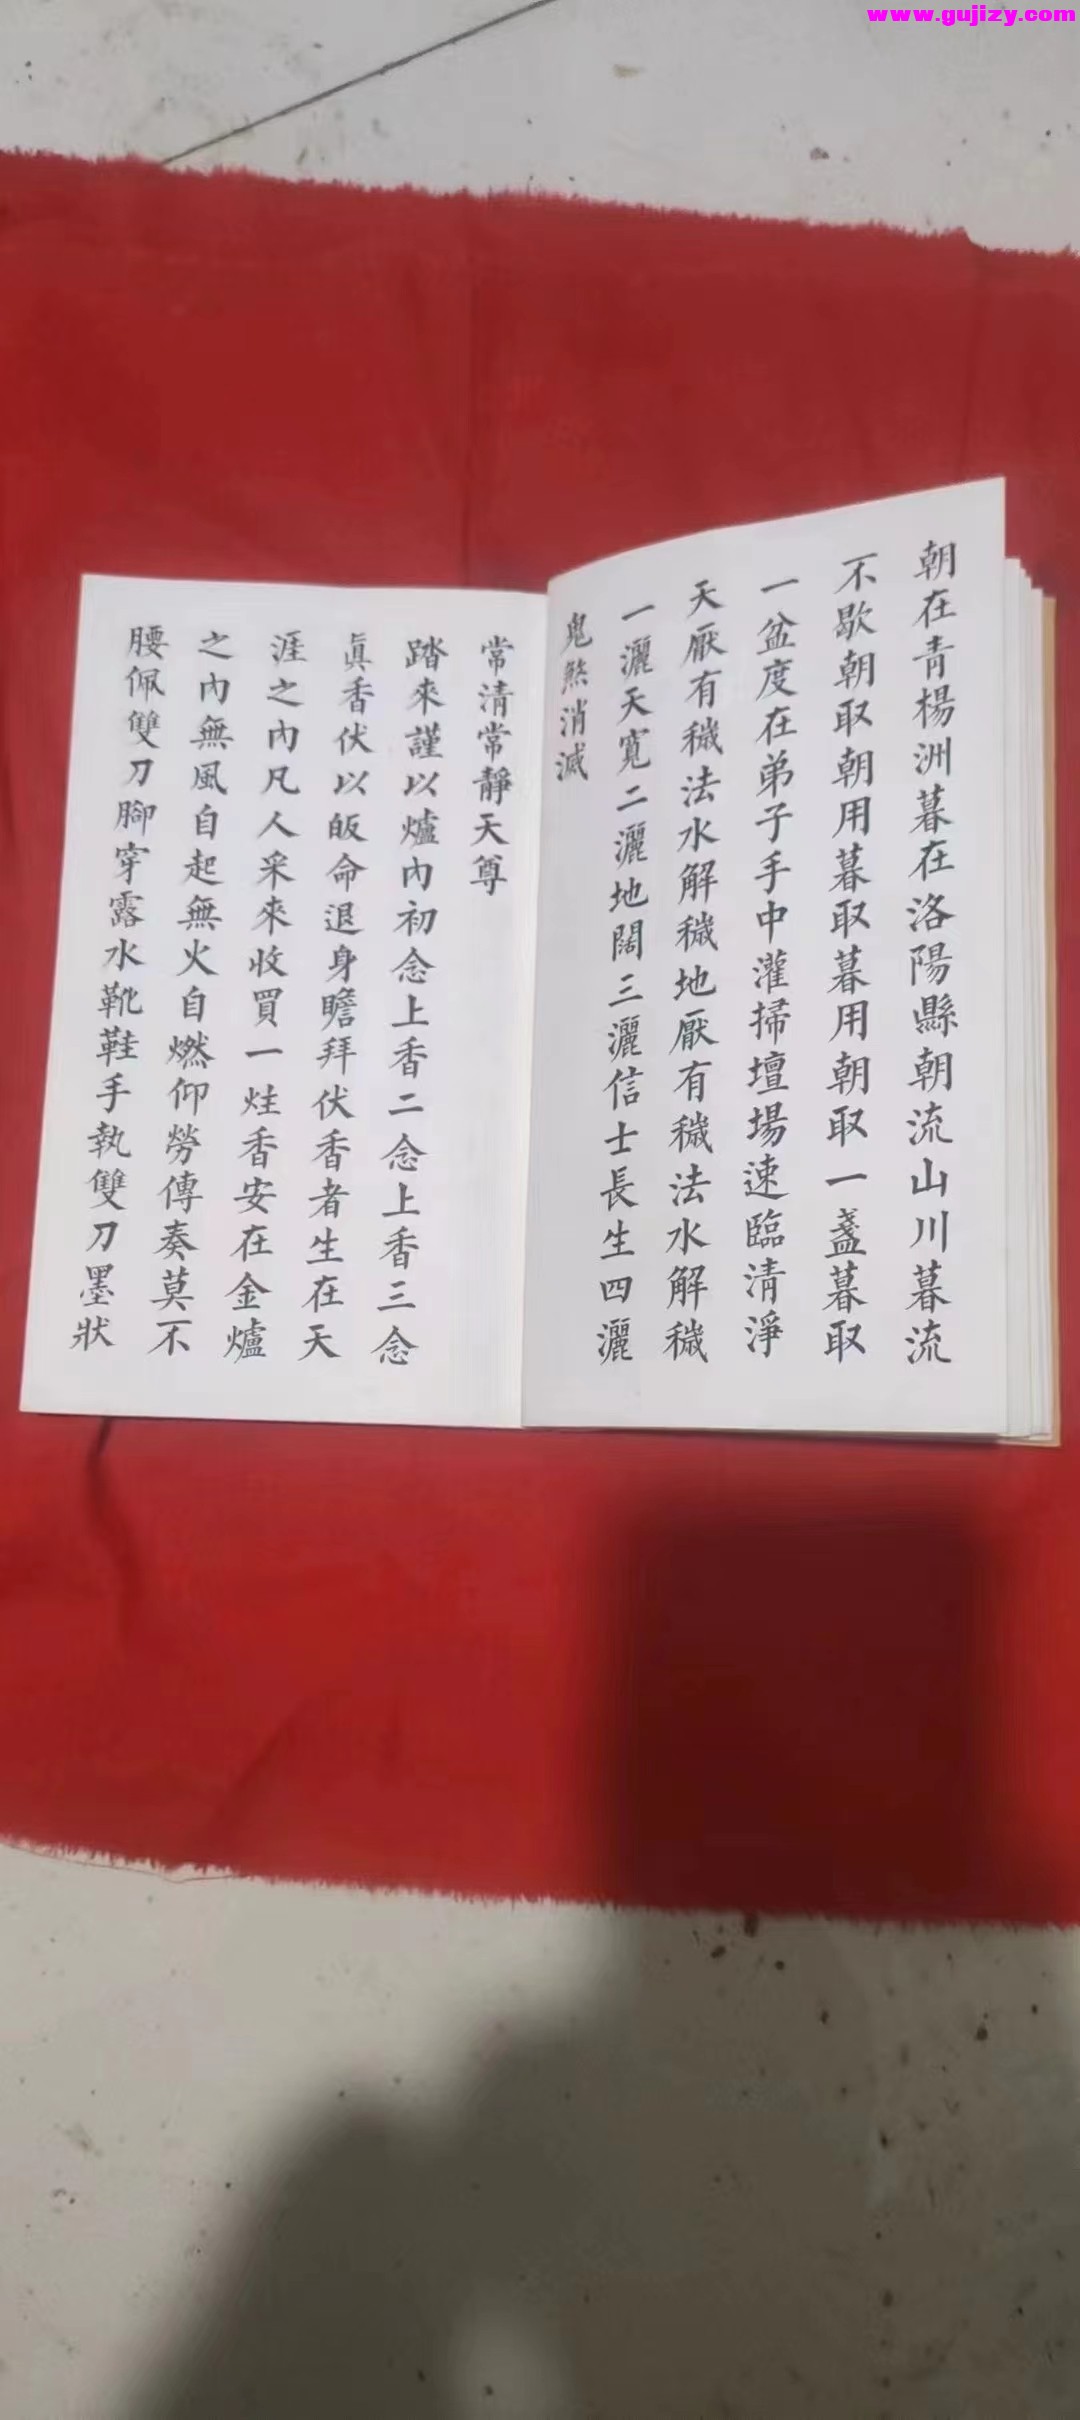 www.gujizy.com
朝在青楊洲暮在洛陽縣朝流山川暮流
不歇朝取朝用暮取暮用朝取一盞暮取
一盆度在弟子手中灌掃壇場速臨清淨
天厭有穢法水解穢地厭有穢法水解穢
一灑天寬二灑地闊三灑信士長生四灑
鬼煞消滅
常清常靜天尊
踏來謹以爐內初念上香二念上香三念
眞香伏以皈命退身瞻拜伏香者生在天
涯之內凡人采來收買一炷香安在金爐
之內無風自起無火自燃仰勞傳奏莫不
腰佩雙刀腳穿露水靴鞋手執雙刀墨狀